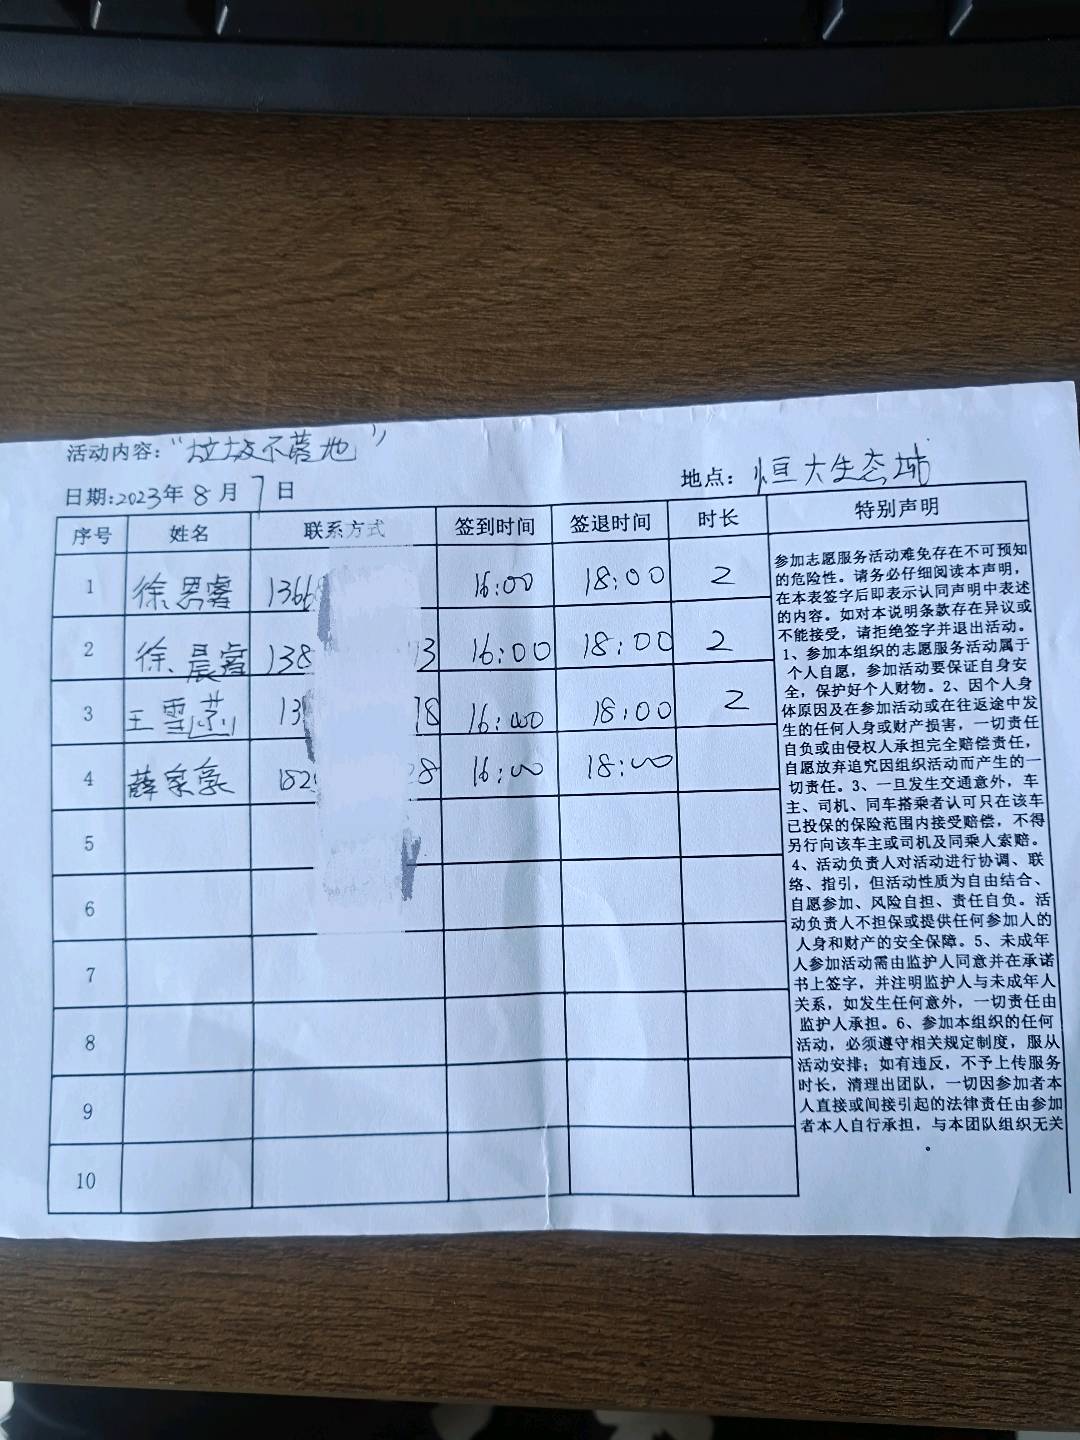 活动内容："垃圾不落地"
日期:2023年8月7日 地点：恒大生态城
序号 姓名 联系方式 签到时间 签退时间 时长 特别声明
1 徐思睿 1366 16:00 18:00 2
2 徐晨睿 138 3 16:00 18:00 2
3 王雪 13 78 16:00 18:00 2
4 薛 182 8 16:00 18:00
5
6
7
8
9
10
参加志愿服务活动难免存在不可预知
的危险性。请务必仔细阅读本声明，
在本表签字后即表示认同声明中表述
的内容。如对本说明条款存在异议或
不能接受，请拒绝签字并退出活动。
1、参加本组织的志愿服务活动属于
个人自愿，参加活动要保证自身安
全，保护好个人财物。2、因个人身
体原因及在参加活动或在往返途中发
生的任何人身或财产损害，一切责任
自负或由侵权人承担完全赔偿责任，
自愿放弃追究因组织活动而产生的一
切责任。3、一旦发生交通意外，车
主、司机、同车搭乘者认可只在该车
已投保的保险范围内接受赔偿，不得
另行向该车主或司机及同乘人索赔。
4、活动负责人对活动进行协调、联
络、指引，但活动性质为自由结合、
自愿参加、风险自担、责任自负。活
动负责人不担保或提供任何参加人的
人身和财产的安全保障。5、未成年
人参加活动需由监护人同意并在承诺
书上签字，并注明监护人与未成年人
关系，如发生任何意外，一切责任由
监护人承担。6、参加本组织的任何
活动，必须遵守相关规定制度，服从
活动安排；如有违反，不予上传服务
时长，清理出团队，一切因参加者本
人直接或间接引起的法律责任由参加
者本人自行承担，与本团队组织无关
。